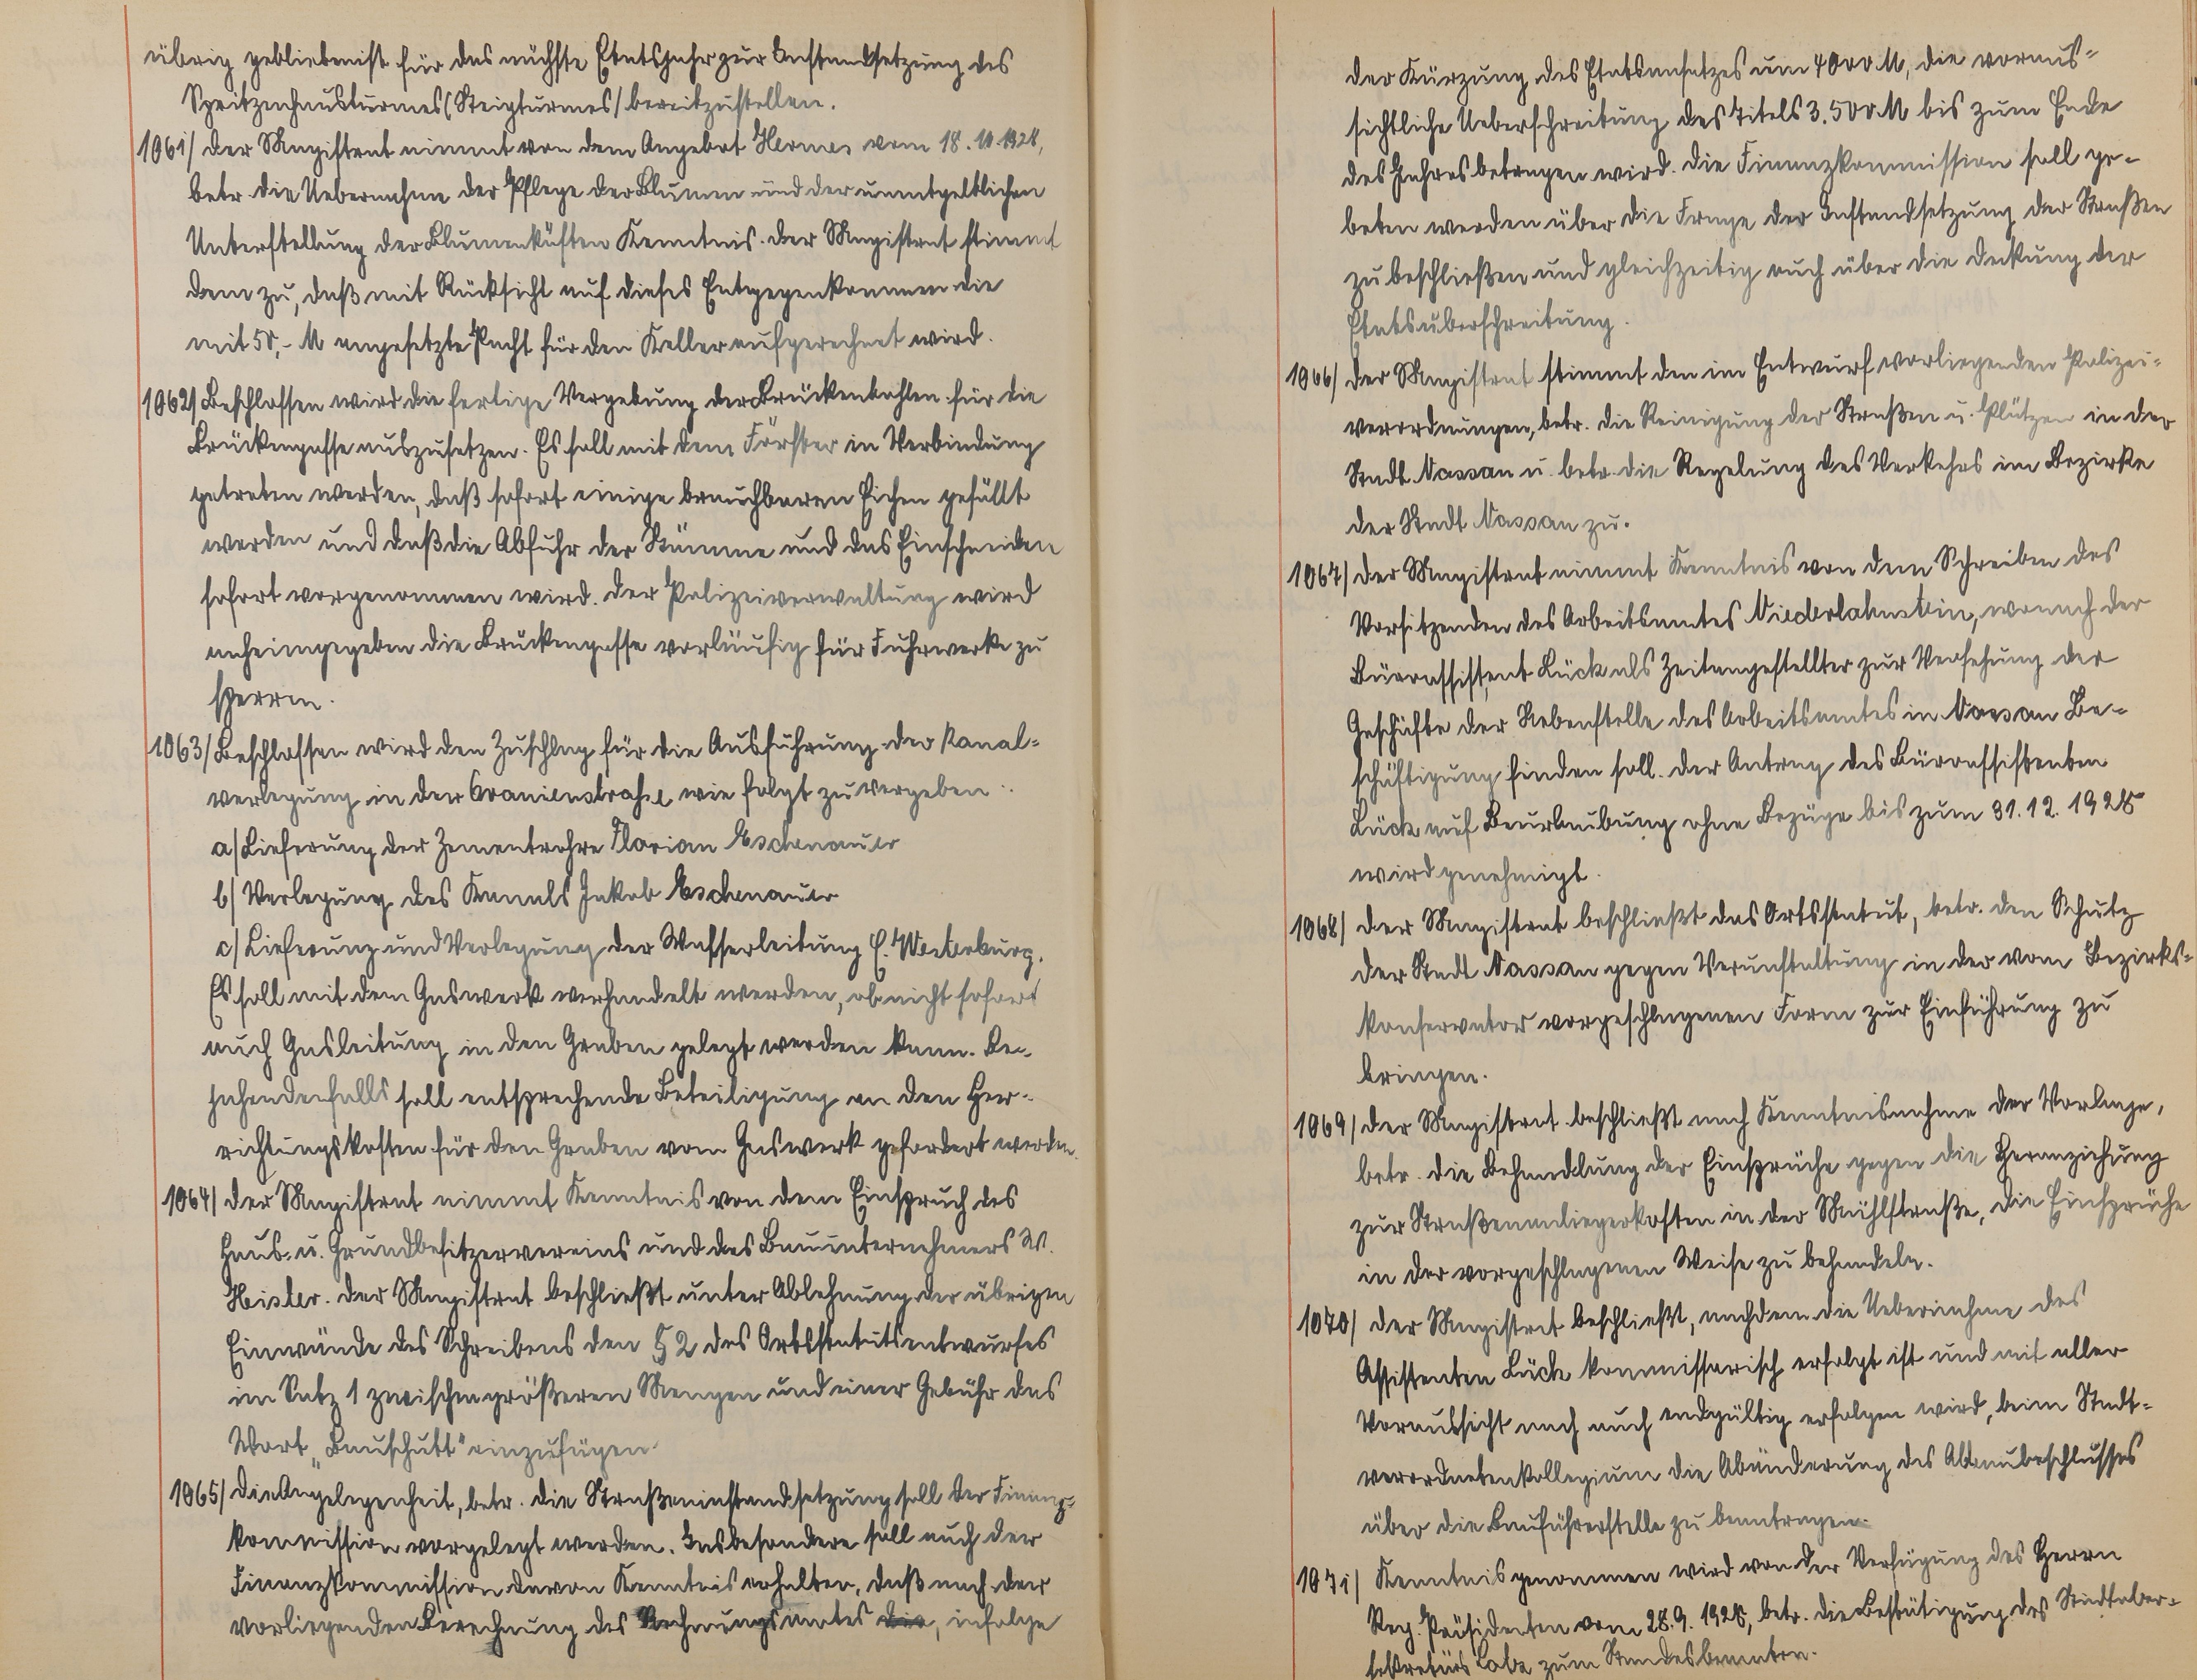 übrig geblieben ist für das nächste Etatsjahr zur Instandsetzung des
Spritzenhausturmes (Steigturmes) bereitzustellen.
1061/ Der Magistrat nimmt von dem Angebot Hermes vom 18.10.1928,
betr. die Uebernahme der Pflege der Blumen und der unentgeltlichen
Unterstellung der Blumenkästen Kenntnis. Der Magistrat stimmt
dem zu, daß mit Rücksicht auf dieses Entgegenkommen die
mit 50,- M angesetzte Pacht für den Keller aufgerechnet wird.
1062/ Beschlossen wird die fertige Vergebung der Brückenbohlen für die
Brückengasse auszusetzen. Es soll mit dem Förster in Verbindung
getreten werden, daß sofort einige brauchbaren Eichen gefällt
werden und daß die Abfuhr der Stämme und das Einschneiden
sofort vorgenommen wird. Der Polizeiverwaltung wird
anheimgegeben die Brückengasse vorläufig für Fuhrwerke zu
sperren.
1063/ Beschlossen wird den Zuschlag für die Ausführung der Kanal-
verlegung in der Oranienstraße wie folgt zu vergeben:
a/ Lieferung der Zementrohre Florian Eschenauer
b/ Verlegung des Kanals Jakob Eschenauer
c/ Lieferung und Verlegung der Wasserleitung E. Westerburg.
Es soll mit dem Gaswerk verhandelt werden, ob nicht sofort
auch Gasleitung in den Graben gelegt werden kann. Be-
jahendenfalls soll entsprechende Beteiligung an den Her-
richtungskosten für den Graben vom Gaswerk gefordert werden.
1064/ Der Magistrat nimmt Kenntnis von dem Einspruch des
Haus- u. Grundbesitzervereins und des Bauunternehmers W.
Heisler. Der Magistrat beschließt unter Ablehnung der übrigen
Einwände des Schreibens den § 2 des Ortsstatutsentwurfes
im Satz 1 zwischen größeren Mengen und einer Gebühr das
Wort „Bauschutt" einzufügen.
1065/ Die Angelegenheit, betr. die Straßeninstandsetzung soll der Finanz-
kommission vorgelegt werden. Insbesondere soll auch der
Finanzkommission davon Kenntnis erhalten, daß nach der
vorliegenden Berechnung des Rechnungsamtes die, infolge
der Kürzung des Etatsansatzes um 4000 M, die voraus-
sichtliche Ueberschreitung des Titels 3.500 M bis zum Ende
des Jahres betragen wird. Die Finanzkommission soll ge-
beten werden über die Frage der Instandsetzung der Straßen
zu beschließen und gleichzeitig auch über die Deckung der
Etatsüberschreitung.
1066/ Der Magistrat stimmt den im Entwurf vorliegenden Polizei-
verordnungen, betr. die Reinigung der Straßen u. Plätzen in der
Stadt Nassau u. betr. die Regelung des Verkehrs im Bezirke
der Stadt Nassau zu.
1067/ Der Magistrat nimmt Kenntnis von dem Schreiben des
Vorsitzenden des Arbeitsamtes Niederlahnstein, wonach der
Büroassistent Lück als Zeitangestellter zur Versehung der
Geschäfte der Nebenstelle des Arbeitsamtes in Nassau Be-
schäftigung finden soll. Der Antrag des Büroassistenten
Lück auf Beurlaubung ohne Bezüge bis zum 31.12.1928
wird genehmigt.
1068/ Der Magistrat beschließt das Ortsstatut, betr. den Schutz
der Stadt Nassau gegen Verunstaltung in der vom Bezirks-
konservator vorgeschlagenen Form zur Einführung zu
bringen.
1069/ Der Magistrat beschließt nach Kenntnisnahme der Vorlage,
betr. die Behandlung der Einsprüche gegen die Heranziehung
zur Straßenanliegerkosten in der Mühlstraße, die Einsprüche
in der vorgeschlagenen Weise zu behandeln.
1070/ Der Magistrat beschließt, nachdem die Uebernahme des
Assistenten Lück kommissarisch erfolgt ist und mit aller
Voraussicht nach auch endgültig erfolgen wird, beim Stadt-
verordnetenkollegium die Abänderung des Abbaubeschlusses
über die Bauführerstelle zu beantragen.
1071/ Kenntnis genommen wird von der Verfügung des Herrn
Reg. Präsidenten vom 28.9.1928, betr. die Bestätigung des Stadtober-
sekretärs Labe zum Standesbeamten.